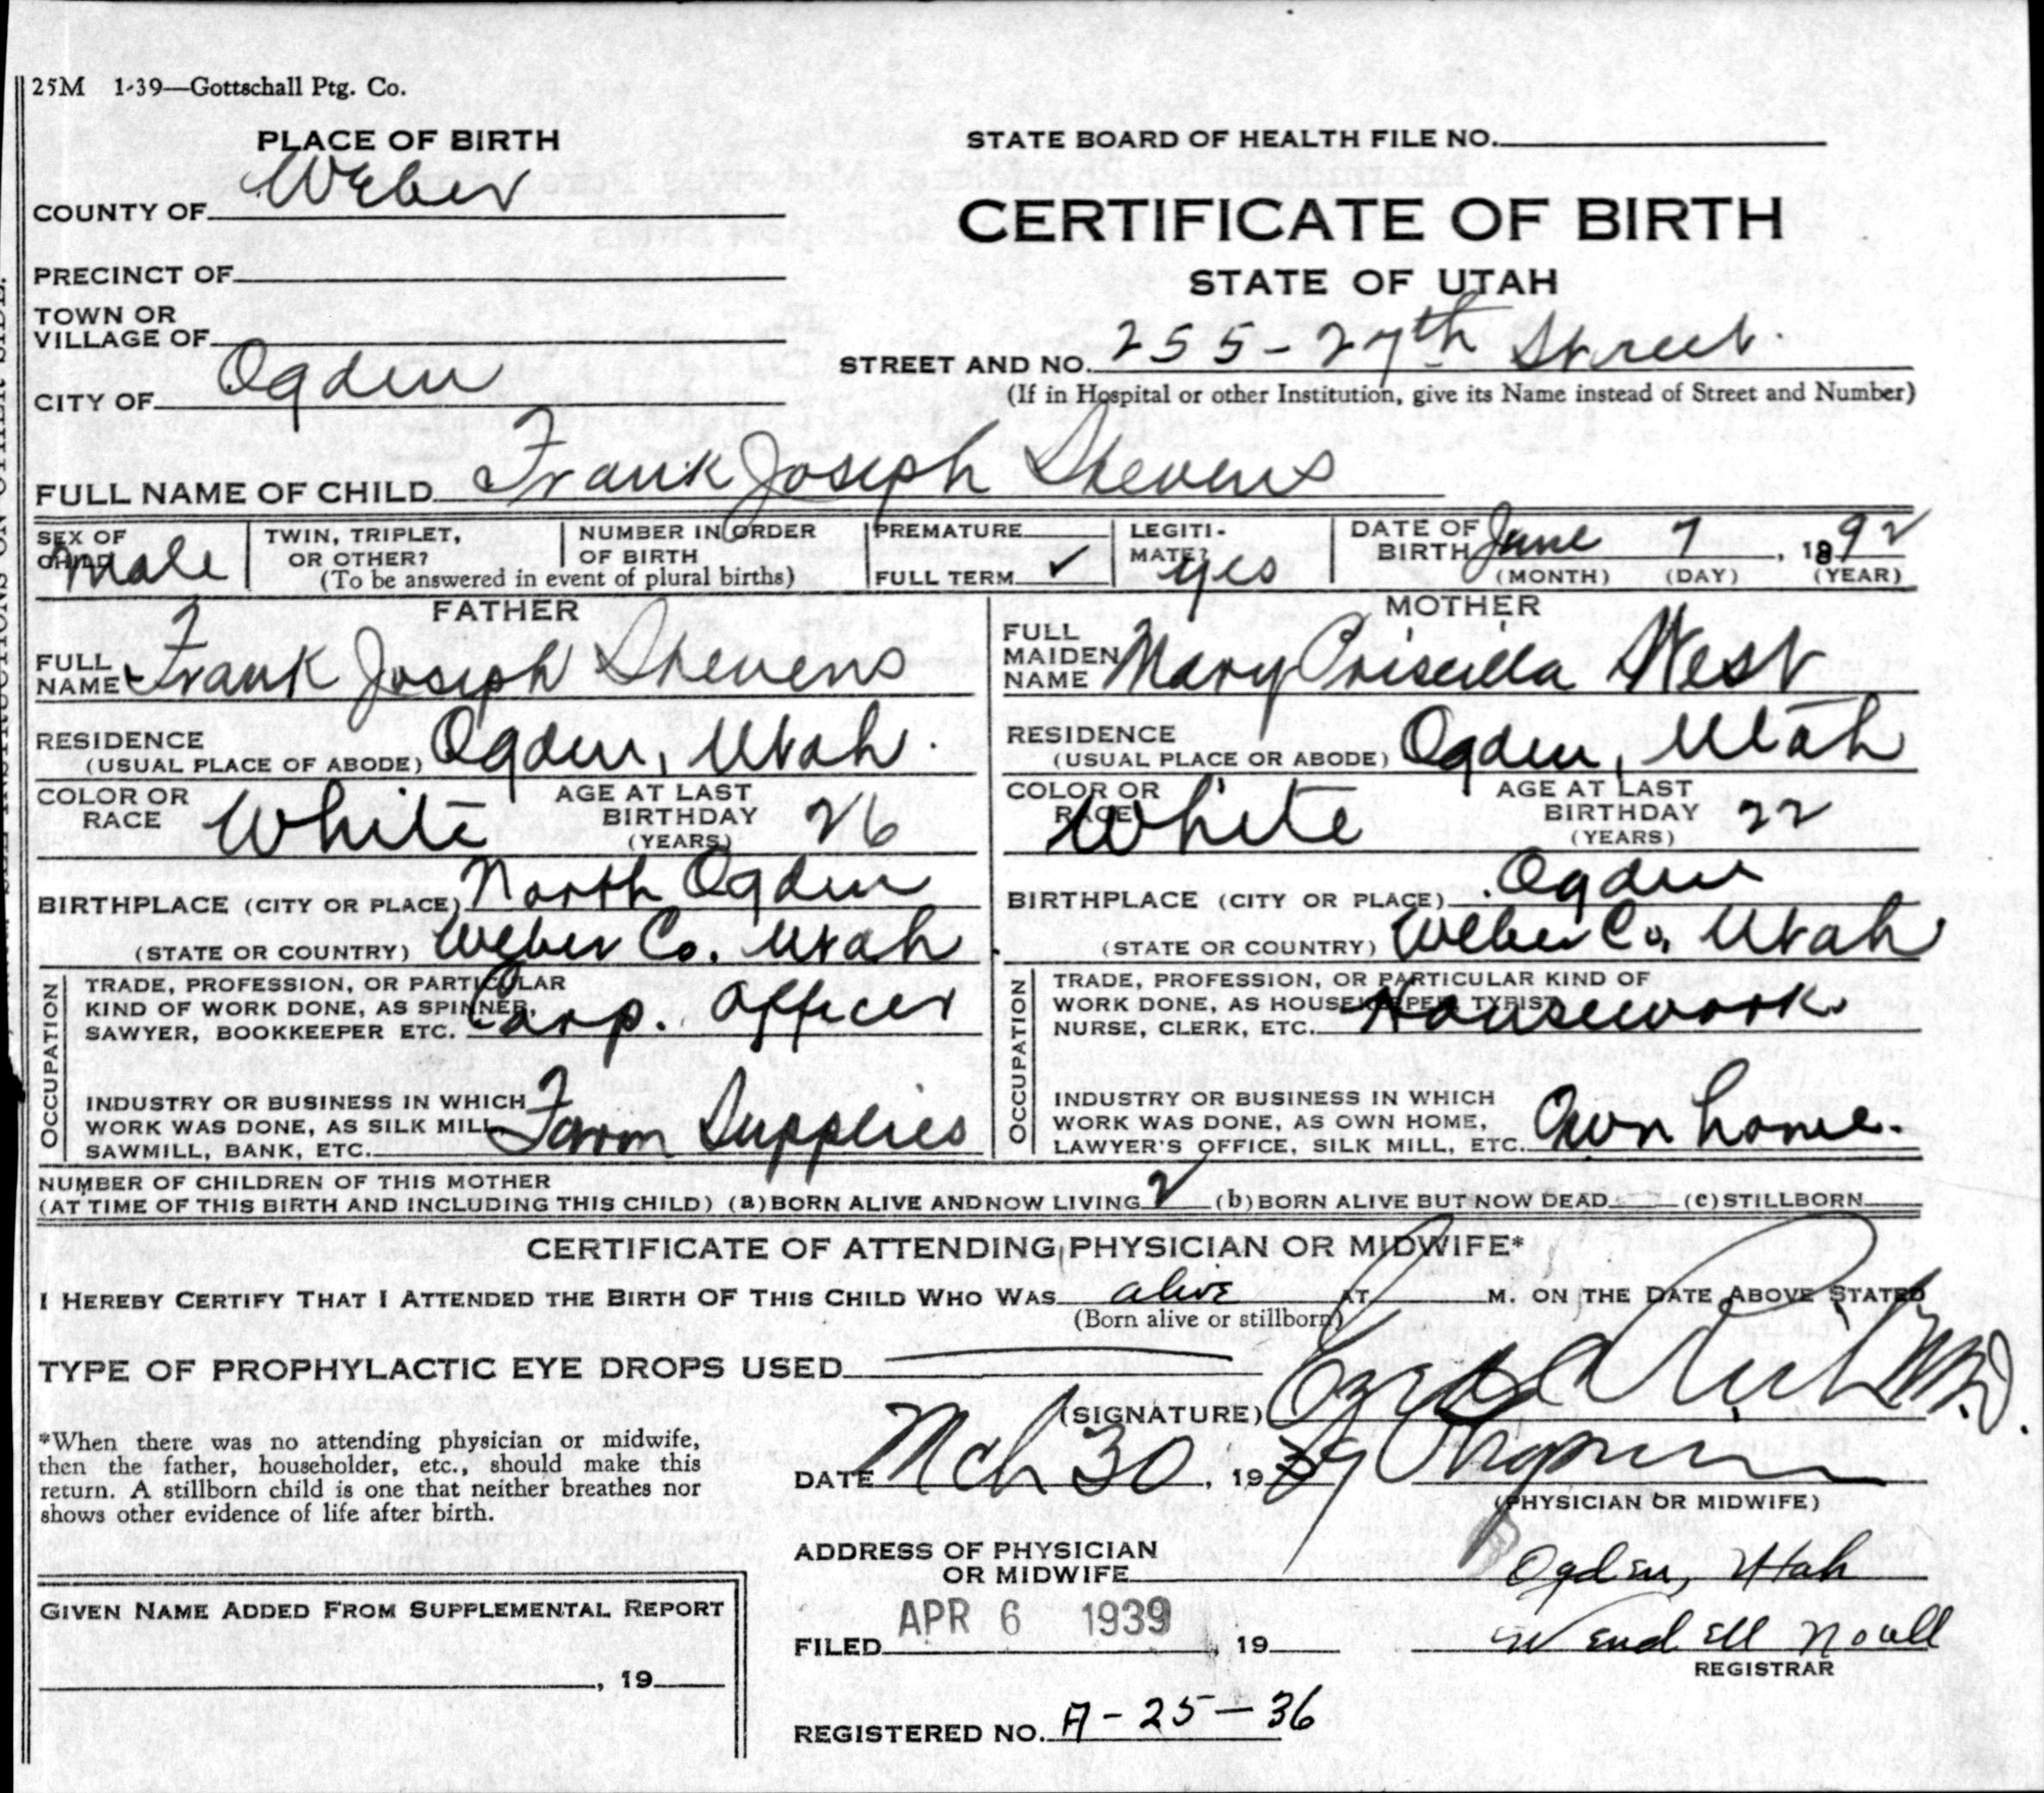 25M 1-39—Gottschall Ptg. Co.
PLACE OF BIRTH
STATE BOARD OF HEALTH FILE NO.
COUNTY OF Weber
CERTIFICATE OF BIRTH
PRECINCT OF
STATE OF UTAH
TOWN OR
VILLAGE OF
STREET AND NO. 255-27th Street.
(If in Hospital or other Institution, give its Name instead of Street and Number)
CITY OF Ogden
FULL NAME OF CHILD Frank Joseph Stevens
SEX OF CHILD Male
TWIN, TRIPLET, OR OTHER?
NUMBER IN ORDER OF BIRTH
(To be answered in event of plural births)
PREMATURE
FULL TERM ✓
LEGITI-
MATE? Yes
DATE OF BIRTH June 7, 1892
(MONTH) (DAY) (YEAR)
FATHER
FULL NAME Frank Joseph Stevens
RESIDENCE
(USUAL PLACE OF ABODE) Ogden, Utah.
COLOR OR RACE White
AGE AT LAST BIRTHDAY (YEARS) 26
BIRTHPLACE (CITY OR PLACE) North Ogden
(STATE OR COUNTRY) Weber Co. Utah
OCCUPATION
TRADE, PROFESSION, OR PARTICULAR
KIND OF WORK DONE, AS SPINNER,
SAWYER, BOOKKEEPER ETC. Corp. Officer
INDUSTRY OR BUSINESS IN WHICH
WORK WAS DONE, AS SILK MILL
SAWMILL, BANK, ETC. Farm Supplies
MOTHER
FULL MAIDEN NAME Mary Priscilla West
RESIDENCE
(USUAL PLACE OR ABODE) Ogden, Utah
COLOR OR RACE White
AGE AT LAST BIRTHDAY (YEARS) 22
BIRTHPLACE (CITY OR PLACE) Ogden
(STATE OR COUNTRY) Weber Co. Utah
OCCUPATION
TRADE, PROFESSION, OR PARTICULAR KIND OF
WORK DONE, AS HOUSEKEEPER TYPIST
NURSE, CLERK, ETC. Housework
INDUSTRY OR BUSINESS IN WHICH
WORK WAS DONE, AS OWN HOME,
LAWYER'S OFFICE, SILK MILL, ETC. Own home.
NUMBER OF CHILDREN OF THIS MOTHER
(AT TIME OF THIS BIRTH AND INCLUDING THIS CHILD) (a) BORN ALIVE AND NOW LIVING 2 (b) BORN ALIVE BUT NOW DEAD (c) STILLBORN
CERTIFICATE OF ATTENDING PHYSICIAN OR MIDWIFE*
I HEREBY CERTIFY THAT I ATTENDED THE BIRTH OF THIS CHILD WHO WAS alive AT M. ON THE DATE ABOVE STATED
(Born alive or stillborn)
TYPE OF PROPHYLACTIC EYE DROPS USED
(SIGNATURE) Ezra C Rich M.D.
*When there was no attending physician or midwife,
then the father, householder, etc., should make this
return. A stillborn child is one that neither breathes nor
shows other evidence of life after birth.
DATE Mch 30, 1939
(PHYSICIAN OR MIDWIFE)
ADDRESS OF PHYSICIAN
OR MIDWIFE Ogden, Utah
GIVEN NAME ADDED FROM SUPPLEMENTAL REPORT
, 19
FILED APR 6 1939, 19
Wendell Noall
REGISTRAR
REGISTERED NO. A-25-36